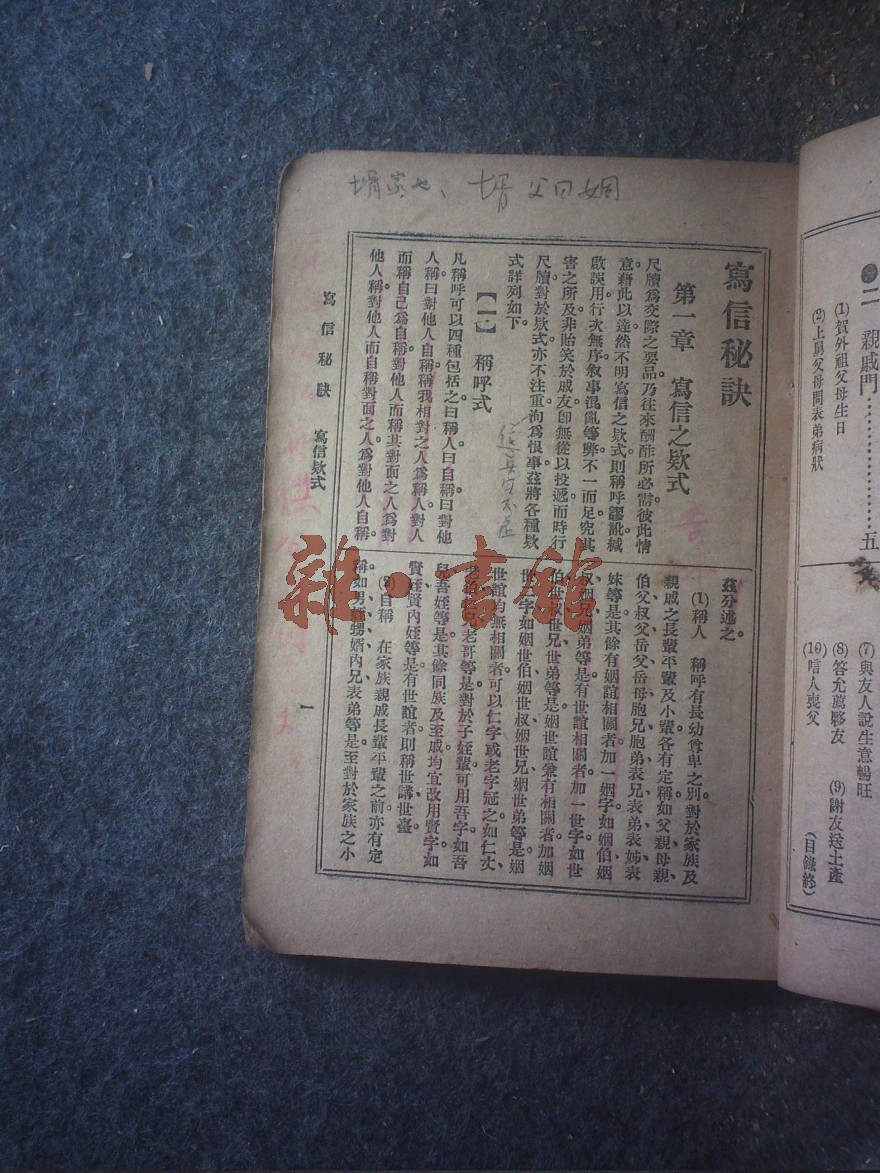 ●二　親戚門……………………五
(1)賀外祖父母生日
(2)上舅父母問表弟病狀
(7)與友人說生意暢旺
(8)答允薦夥友　(9)謝友送土產
(10)唁人喪父　(目錄終)
壻父曰姻
寫信秘訣
第一章　寫信之欵式
尺牘爲交際之要品乃往來酬酢所必需彼此情
意藉此以達然不明寫信之欵式則稱呼謬訛緘
啟誤用行次無序敘事混亂等弊不一而足究其
害之所及非貽笑於戚友卽無從以投遞而時行
尺牘對於欵式亦不注重洵爲恨事茲將各種欵
式詳列如下。
【一】　稱呼式
凡稱呼可以四種包括之曰稱人曰自稱曰對他
人稱曰對他人自稱稱我相對之人爲稱人對人
而稱自己爲自稱對他人而稱其對面之人爲對
他人稱對他人而自稱對面之人爲對他人自稱
茲分述之。
(1)稱人　稱呼有長幼尊卑之別。對於家族及
親戚之長輩平輩及小輩各有定稱如父親母親、
伯父叔父岳父岳母胞兄胞弟表兄表弟表姊表
妹等是其餘有姻誼相關者加一姻字如姻伯姻
叔姻兄姻弟等是有世誼相關者加一世字如世
伯世叔世兄世弟等是姻世誼兼有相關者加姻
世二字如姻世伯姻世叔姻世兄姻世弟等是姻
世誼均無相關者可以仁字或老字冠之如仁丈、
老伯仁兄老哥等是對於子姪輩可用吾字如吾
兒吾姪等是其餘同族及至戚均宜改用賢字如
賢姪賢內姪等是有世誼者則稱世講世臺。
(2)自稱　在家族親戚長輩平輩之前亦有定
稱如男姪甥婿內兄表弟等是至對於家族之小
寫信秘訣　寫信欵式
一
雜·書館